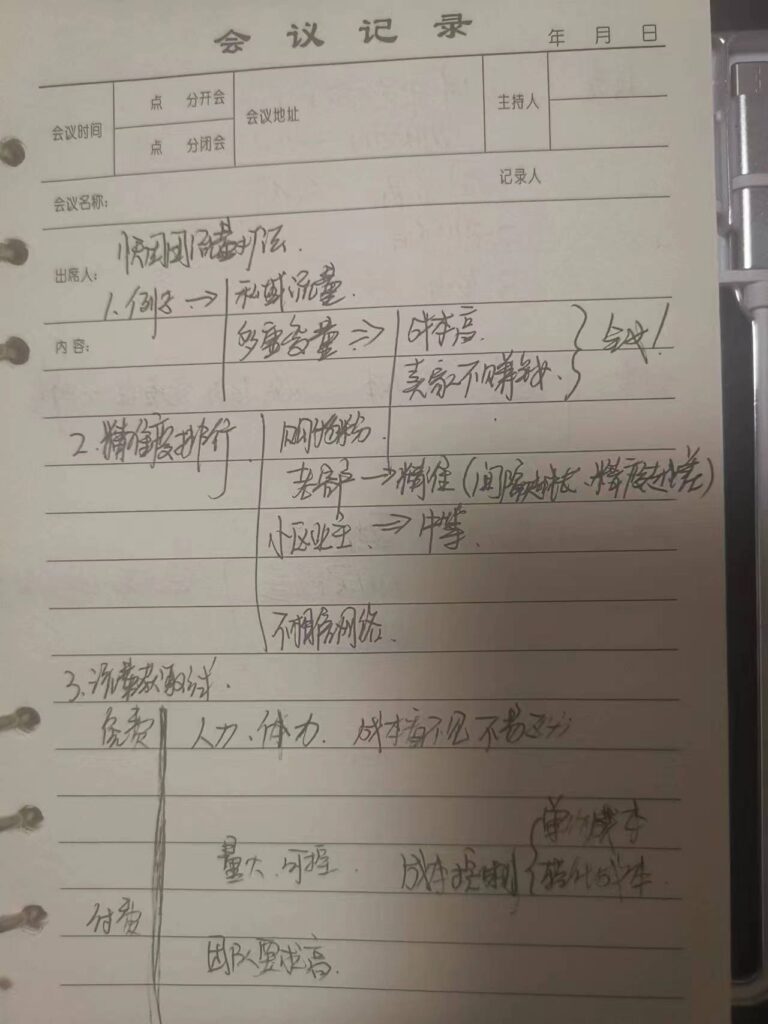 会议记录
年 月 日
会议时间 点 分开会 会议地址 主持人
点 分闭会
会议名称: 记录人
快团团流量打法.
出席人:
1.例子 → 私域流量.
内容: 够垂流量 ⇒ 成本高
卖家不赚钱.
2.精准度排行
老客户 → 精准(间隔越长、精度越差)
小区业主. ⇒ 中等.
不相信网络.
3.流量获取方式.
免费 人力、体力. 成本看不见 不易
单价成本
量大、可控. 成本控制 转化成本.
付费
团队要求高.